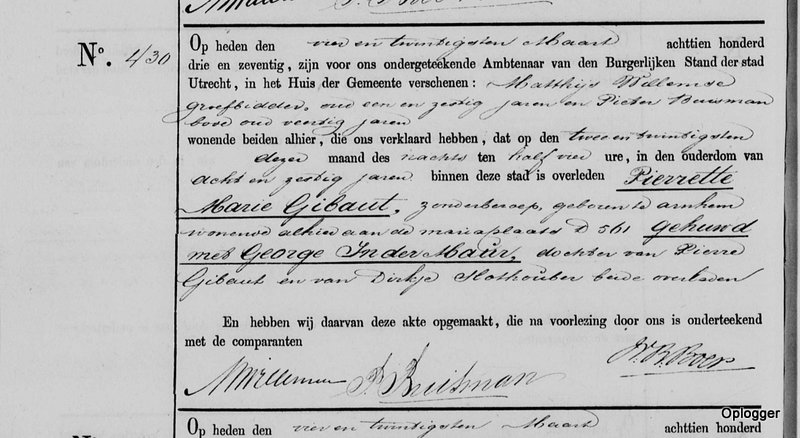 No. 430
Op heden den vier en twintigsten Maart achttien honderd
drie en zeventig, zijn voor ons ondergeteekende Ambtenaar van den Burgerlijken Stand der stad
Utrecht, in het Huis der Gemeente verschenen: Matthijs Willemse
groefbidder, oud een en zestig jaren en Pieter
oud veertig jaren
wonende beiden alhier, die ons verklaard hebben, dat op den twee en twintigsten
dezer maand des nachts ten half vier ure, in den ouderdom van
acht en zestig jaren binnen deze stad is overleden Pierrette
Marie Gibaut, zonder beroep, geboren te arnhem
wonende alhier aan de mariaplaats D 561 gehuwd
met George In der Maur, dochter van Pierre
Gibaut en van Dirkje Holthouber beide overleden
En hebben wij daarvan deze akte opgemaakt, die na voorlezing door ons is onderteekend
met de comparanten
Oplogger
Op heden den vier en twintigsten Maart achttien honderd